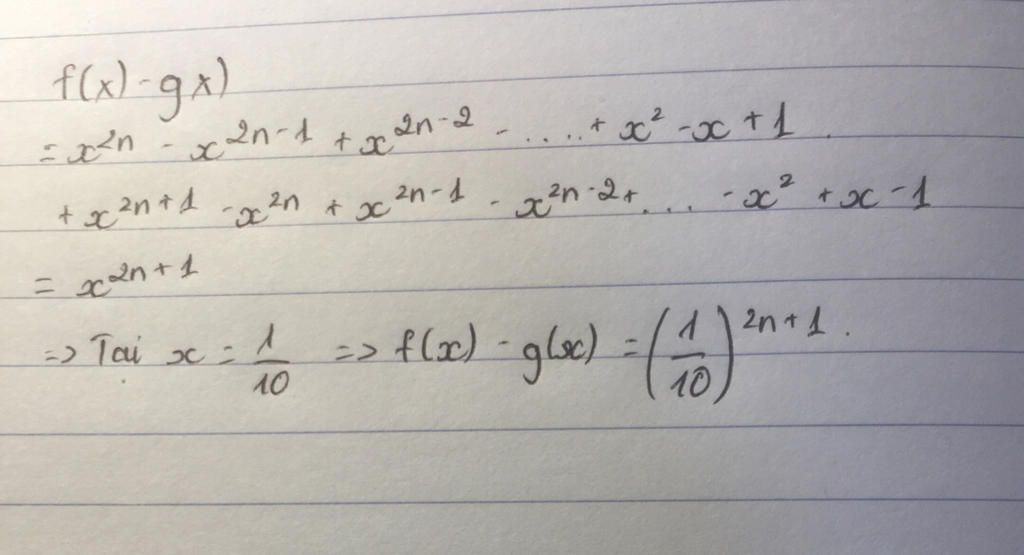 f(x) - gx)
= x^{2n} - x^{2n-1} + x^{2n-2} - ..... + x² - x + 1.
+ x^{2n+1} - x^{2n} + x^{2n-1} - x^{2n-2} + ... - x² + x - 1
= x^{2n+1}
=> Tại x = 1/10 => f(x) - g(x) = (1/10)^{2n+1}.